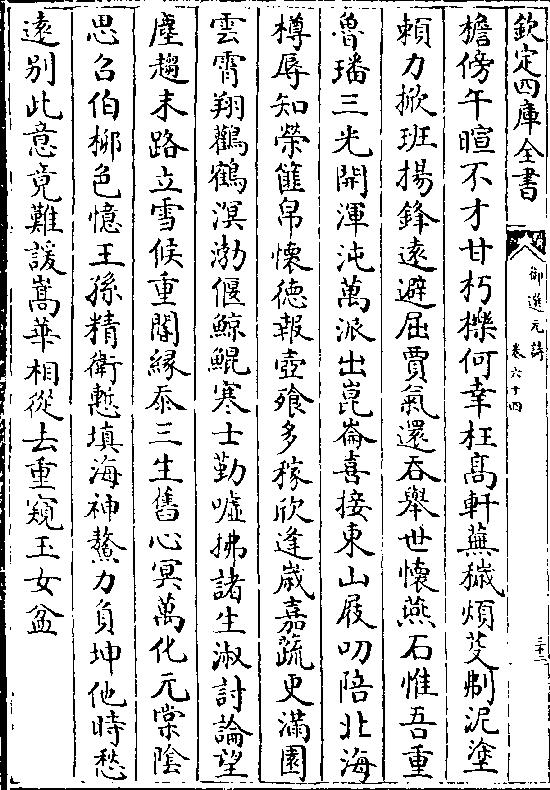 欽定四庫全書
御選元詩
卷六十四
三十二
檐傍午暄不才甘朽櫟何幸枉髙軒蕪穢煩芟剃泥塗
頼力掀班揚鋒逺避屈賈氣還吞舉世懷燕石惟吾重
魯璠三光開渾沌萬派出崑崙喜接東山屐叨陪北海
樽辱知榮篚帛懷德報壺飱多稼欣逢嵗嘉蔬更滿園
雲霄翔鸛鶴溟渤偃鯨鯤寒士勤噓拂諸生淑討論望
塵趨末路立雪候重閽縁忝三生舊心冥萬化元棠陰
思召伯桺色憶王孫精衛慙填海神鰲力負坤他時愁
逺别此意竟難諼嵩華相從去重窺玉女盆